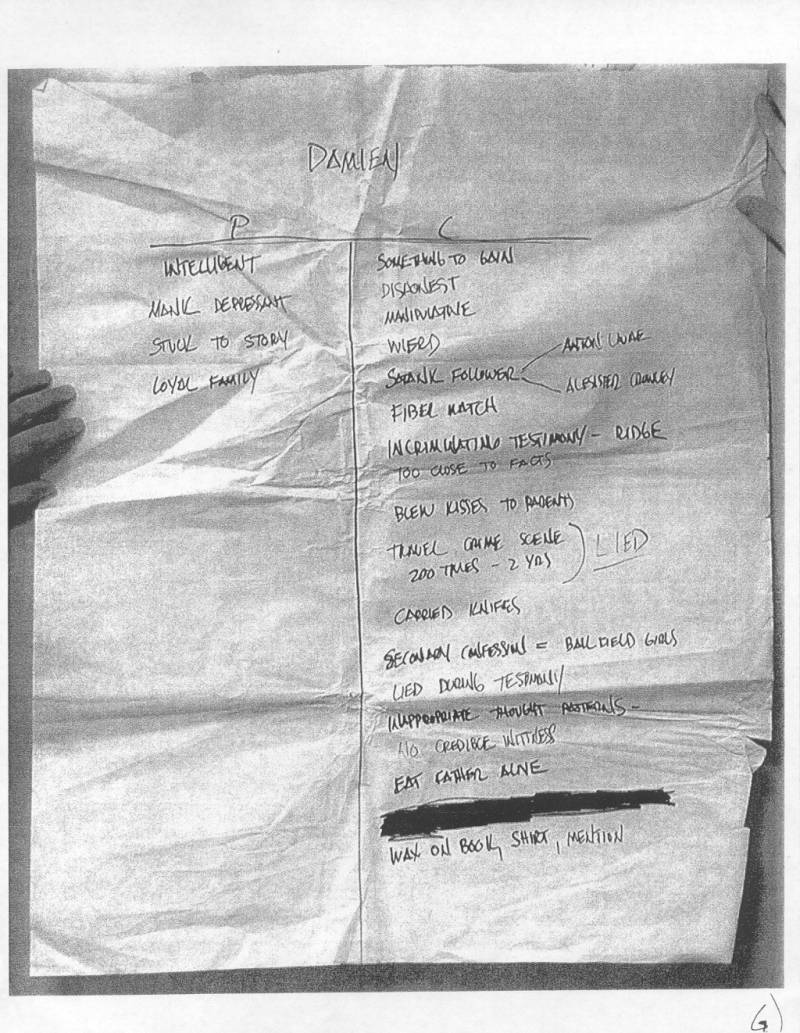 DAMIEN
P
C
INTELLIGENT
MANIC DEPRESSANT
STUCK TO STORY
LOYAL FAMILY
SOMETHING TO GAIN
DISHONEST
MANIPULATIVE
WIERD
SATANIC FOLLOWER
ANTON LAVAE
ALEISTER CROWLEY
FIBER MATCH
INCRIMINATING TESTIMONY - RIDGE
TOO CLOSE TO FACTS
BLEW KISSES TO PARENTS
TRAVEL CRIME SCENE
200 TIMES - 2 YRS
LIED
CARRIED KNIFES
SECONDARY CONFESSION = BALL FIELD GIRLS
LIED DURING TESTIMONY
INAPPROPRIATE THOUGHT PATTERNS -
NO CREDIBLE WITNESS
EAT FATHER ALIVE
WAX ON BOOK, SHIRT, MENTION
G)